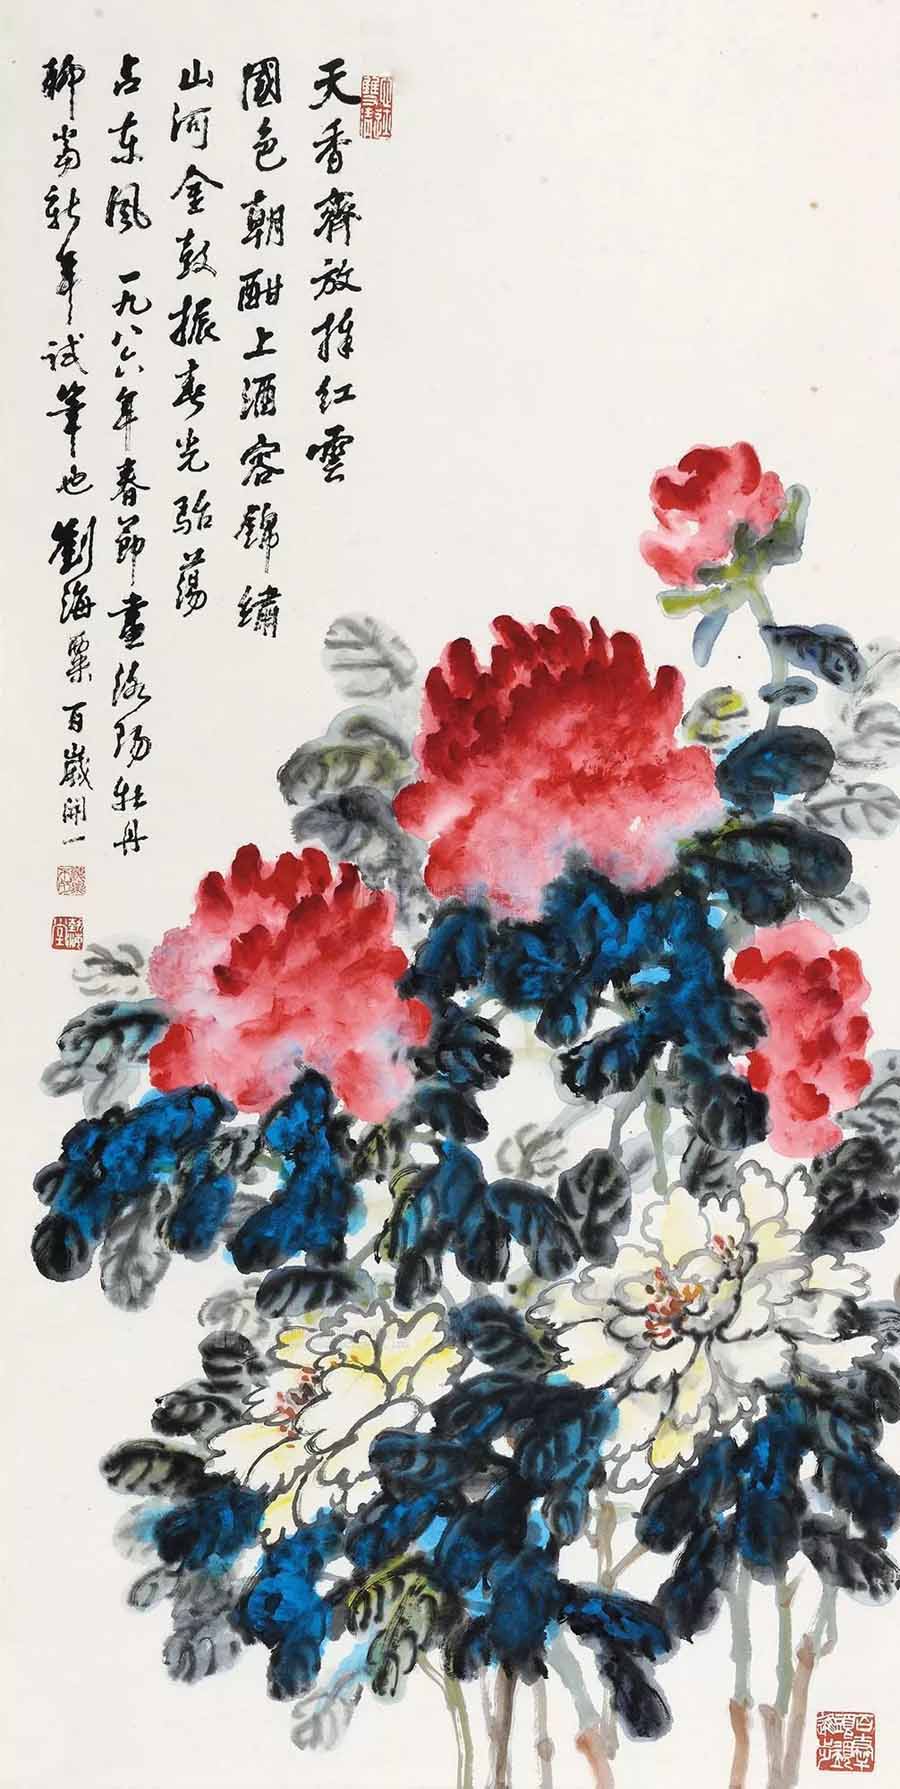 天香齊放擁紅雲
國色朝酣上酒容錦繡
山河金鼓振春光駘蕩
占東風 一九八六年春節畫洛陽牡丹
聊當新年試筆也 劉海粟 百歲開一